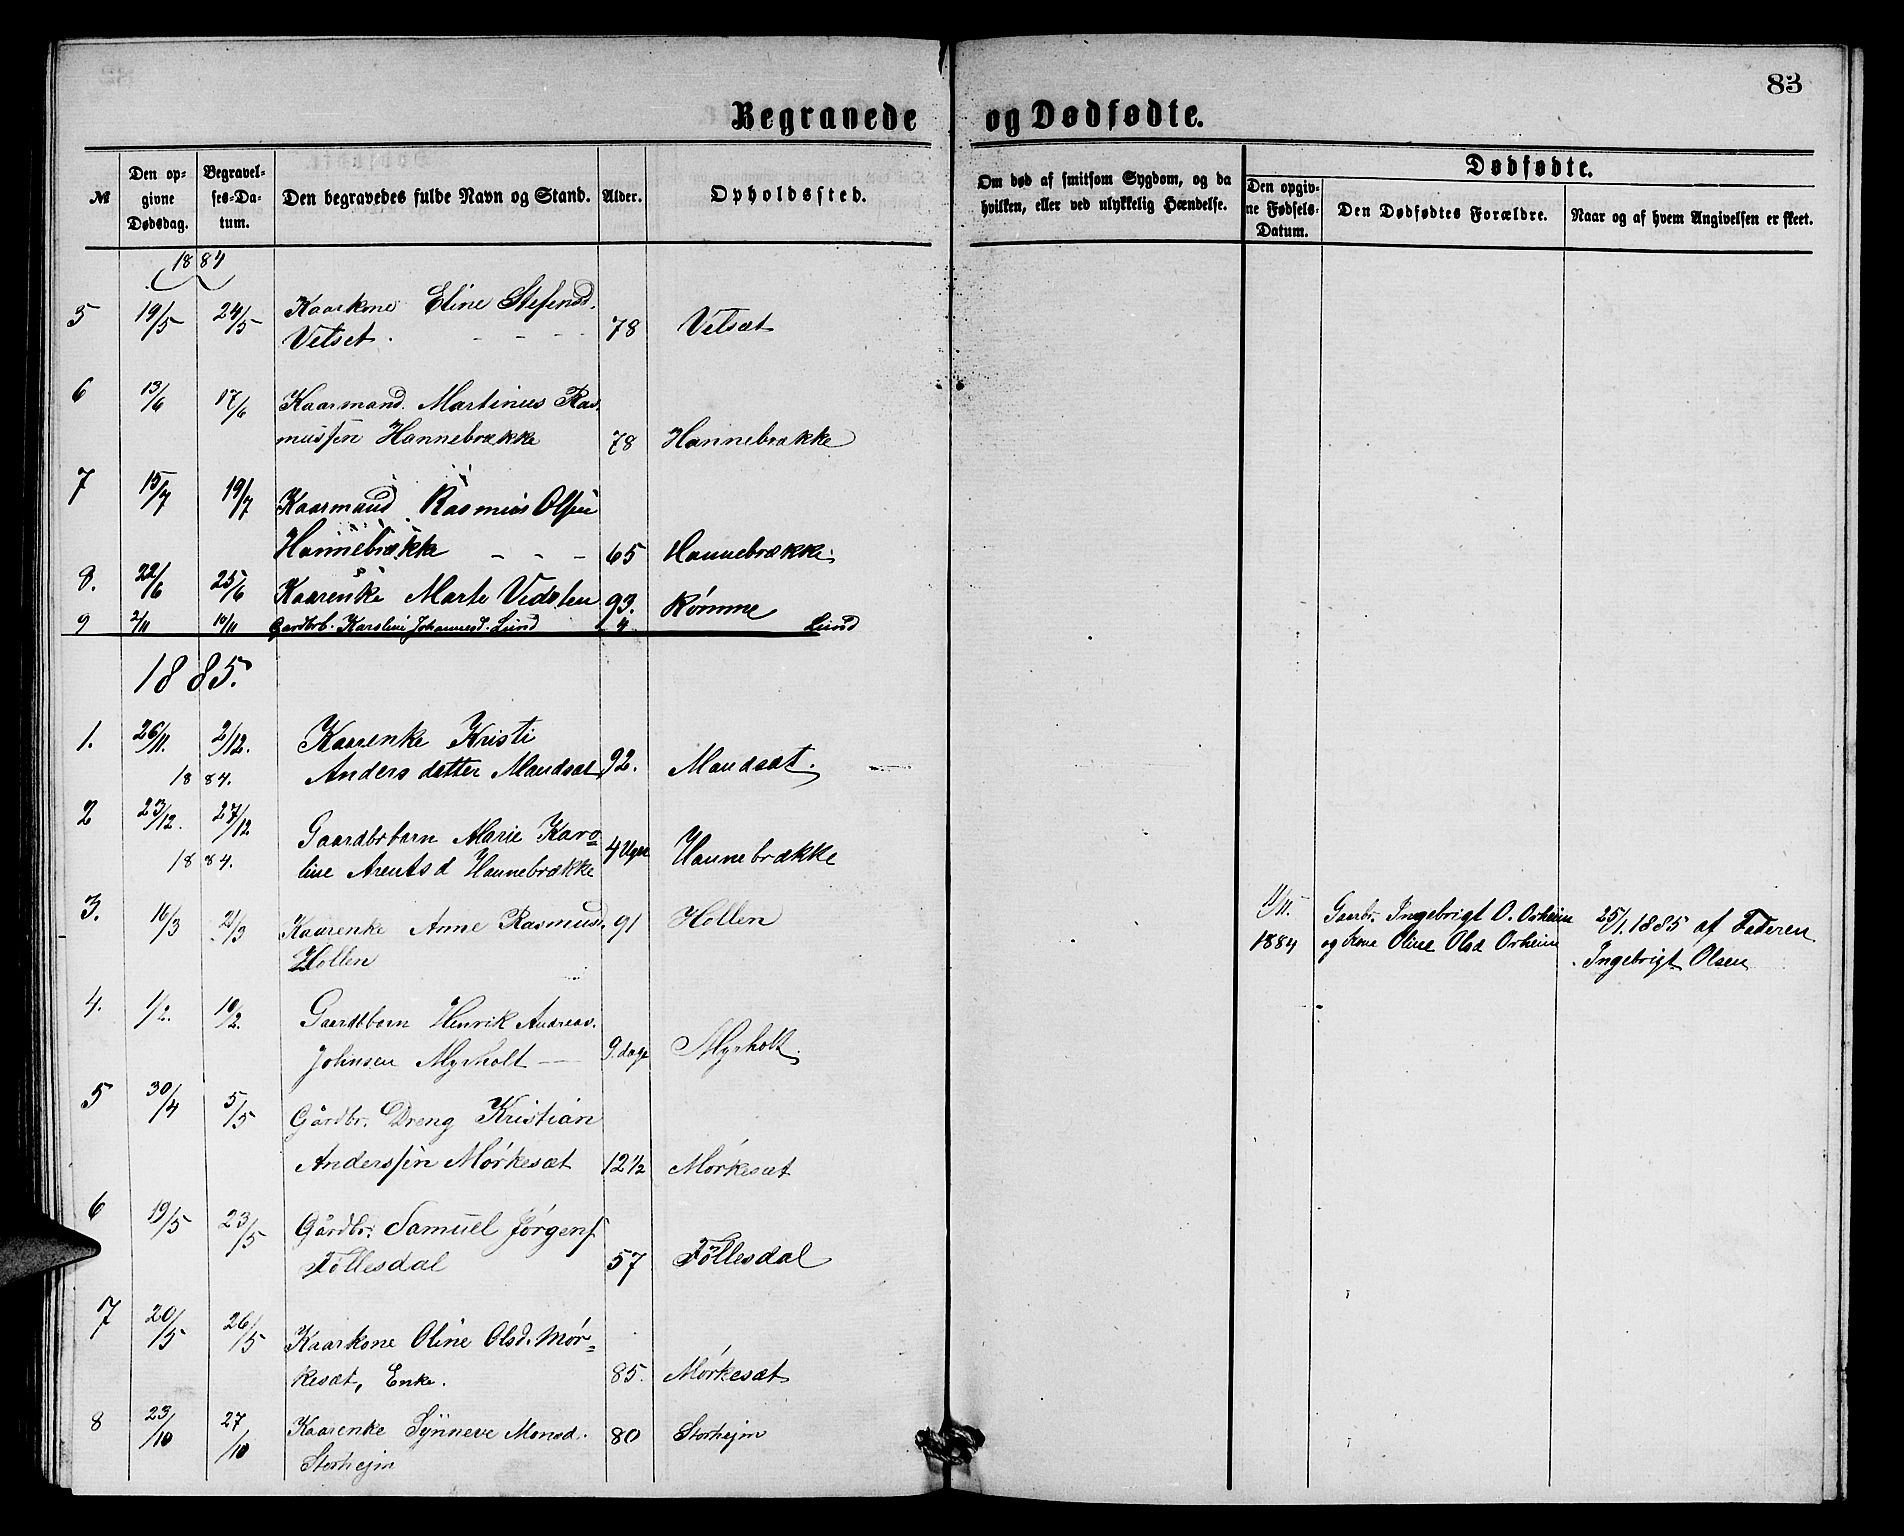 83
Begravede og Dødfødte.
№ Den opgivne Dødsdag. Begravelses-Datum. Den begravedes fulde Navn og Stand. Alder. Opholdssted. Om død af smitsom Sygdom, og da hvilken, eller ved ulykkelig Hændelse. Dødfødte.
Den opgivne Fødsels-Datum. Den Dødfødtes Forældre. Naar og af hvem Angivelsen er skeet.
1884
5 19/5 24/5 Kaarkone Eline Stefensd.
Vetset. - - - 78 Vetsæt
6 13/6 17/6 Kaarmand. Martinus Ras-
mussen Hannebrække 78 Hannebrække
7 15/7 19/7 Kaarmand Rasmus Olsen
Hannebrække - - - 65 Hannebrække.
8. 22/6 25/6 Kaarenke Marte Vidsten 93. Rømme
9 2/11 10/11 Gardbrb. Karsline Johannesd. Lund 4 Lund
1885.
1. 26/11. 2/12. Kaarenke Kristi
1884. Andersdatter Maudsæt 92. Maudsæt.
2 23/12. 27/12 Gaardbrbarn Marie Karo=
1884. line Arentsd Hannebrække 4 Uger Hannebrække
3. 16/3 21/3 Kaarenke Anne Rasmusd. 91 Hollen
Hollen
11/11. 1884 Gaarbr. Ingebrigt O. Orheim
og Kone Oline Olsd Orheim
25/1. 1885 af Faderen
Ingebrigt Olsen
4. 1/2. 10/2. Gaardbbarn Henrik Andreas.
Johnsen Myrholt — 9. dage Myrholt.
5 30/4 5/5 Gårdbr. Dreng Kristian
Anderssen Mørkesæt 12 1/2 Mørkesæt
6 19/5 23/5 Gårdbr. Samuel Jørgens.
Føllesdal 57 Føllesdal
7 20/5 26/5 Kaarkone Oline Olsd. Mør=
kesæt, Enke. 85. Mørkesæt
8 23/10 27/10 Kaarenke Synneve Monsd. 80 Storhejm
Storhejm